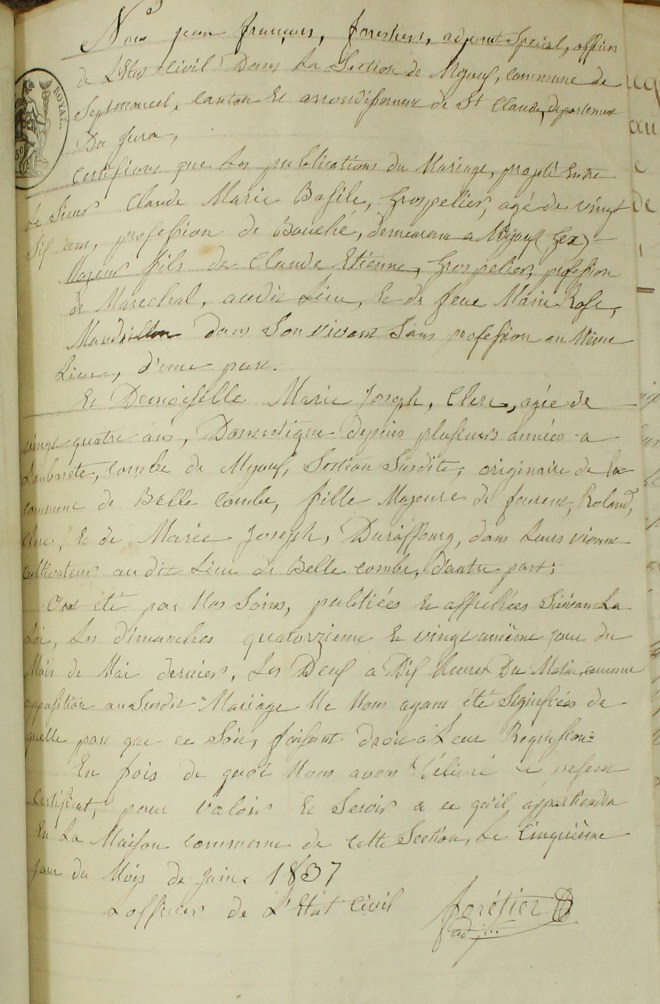 Nous jean françois, forestier, adjoint Spécial, officier
de L'Etat Civil Dans La Section de Mijoux, commune de
Septmoncel, canton Et arrondissement de St Claude, département
Du jura,
ROYAL
Certifions que Les publications du Mariage, projeté Entre
Le Sieur Claude Marie Basile, Grospelier, agé de vingt
Six ans, profession de Bouché, demeurant a Mijoux Gex,
Majeur fils de Claude Etienne, Grospelier, profession
de Marechal, audit Lieu, Et de feue Marie Rose,
dans Son vivant Sans profession au Même
Lieu, d'une part.
Et Demoiselle Marie Joseph, Clerc, agée de
vingt quatre ans, Domestique depuis plusieurs années a
combe de Mijoux, Section Susdite, originaire de la
commune de Belle Combe, fille Majeure de Roland,
Clerc, Et de Marie Joseph, Duraffourg, dans Leurs vivant
Cultivateurs audit Lieu de Belle combe, D'autre part;
Ont été par Nos Soins, publiées Et affichées Suivant La
Loi, Les dimanches quatorzieme Et vingt unième jour du
Mois de Mai dernier, Les Deux a Dix heures Du Matin, aucune
opposition au Susdit Mariage Ne Nous ayant été Signifiées de
quelle part que ce Soit, faisant droit a Leur Requisition
En fois de quoi Nous avons Délivré Le present
Certificat, pour valoir Et Servir a ce qu'il appartiendra
En La Maison commune de cette Section, Le Cinquième
jour du Mois de Juin 1837
L'officier de L'Etat Civil forétier
adj.